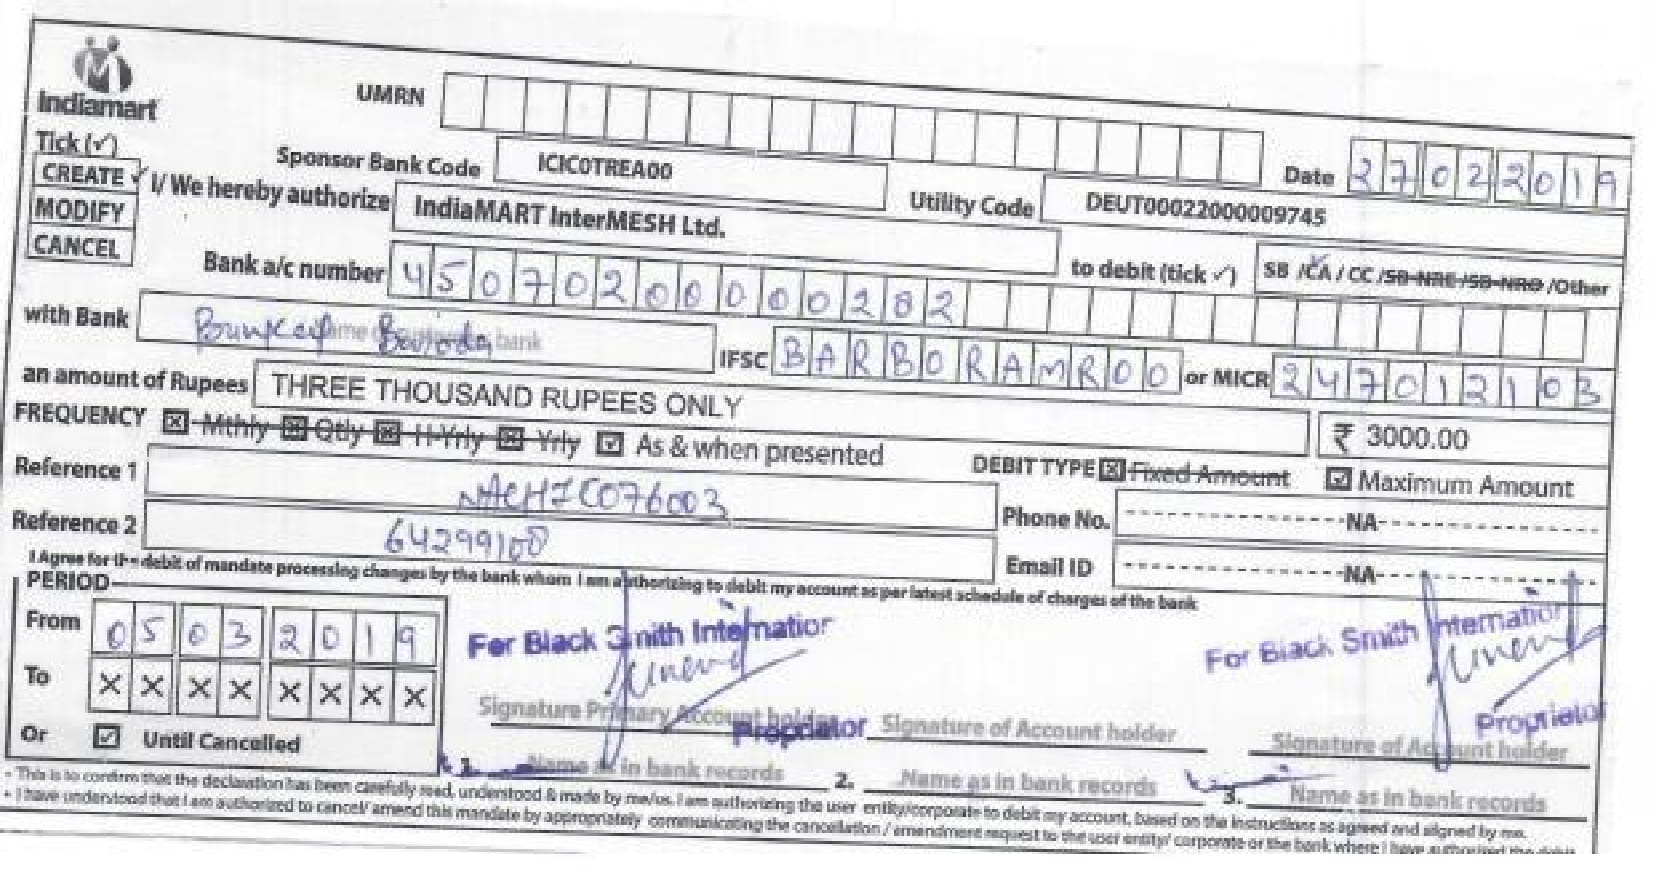 Indiamart
UMRN
Date 27022019
Tick (✓)
CREATE ✓
MODIFY
CANCEL
Sponsor Bank Code ICIC0TREA00
Utility Code DEUT00022000009745
I/ We hereby authorize IndiaMART InterMESH Ltd.
to debit (tick ✓) SB /CA / CC /SB-NRE /SB-NRO /Other
Bank a/c number 45070200000282
with Bank Bank of Baroda
IFSC BARB0RAMROO or MICR 247012103
an amount of Rupees THREE THOUSAND RUPEES ONLY
₹ 3000.00
FREQUENCY ☒ Mthly ☒ Qtly ☒ H-Yrly ☒ Yrly ☑ As & when presented
DEBIT TYPE ☒ Fixed Amount ☑ Maximum Amount
Reference 1 NACHIC076003
Phone No. NA
Reference 2 64299100
Email ID NA
I Agree for the debit of mandate processing changes by the bank whom I am authorizing to debit my account as per latest schedule of charges of the bank
PERIOD
From 05032019
To XXXXXXXX
Or ☑ Until Cancelled
For Black Smith Internatior
For Black Smith Internation
Signature Primary Account holder
Proprietor
Signature of Account holder
Proprietor
Signature of Account holder
1. Name as in bank records
2. Name as in bank records
3. Name as in bank records
• This is to confirm that the declaration has been carefully read, understood & made by me/us. I am authorizing the user entity/corporate to debit my account, based on the instructions as agreed and signed by me.
• I have understood that I am authorized to cancel/ amend this mandate by appropriately communicating the cancellation / amendment request to the user entity/ corporate or the bank where I have authorized the debit.